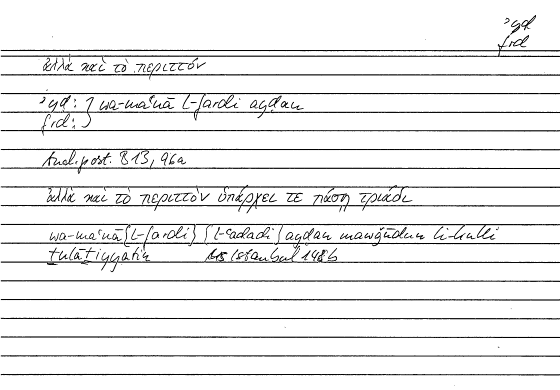 ʾyḍ
frd
ἀλλὰ καὶ τὸ περιττόν
ʾyḍ: } wa-maʿnā l-fardi ayḍan
frd: }
Anal. post. B 13, 96a
ἀλλὰ καὶ τὸ περιττὸν ὑπάρχει τε πάσῃ τριάδι
wa-maʿnā {l-fardi} {l-ʿadadi} ayḍan mawǧūdun li-kulli
ṯulāṯiyyatin Istanbul